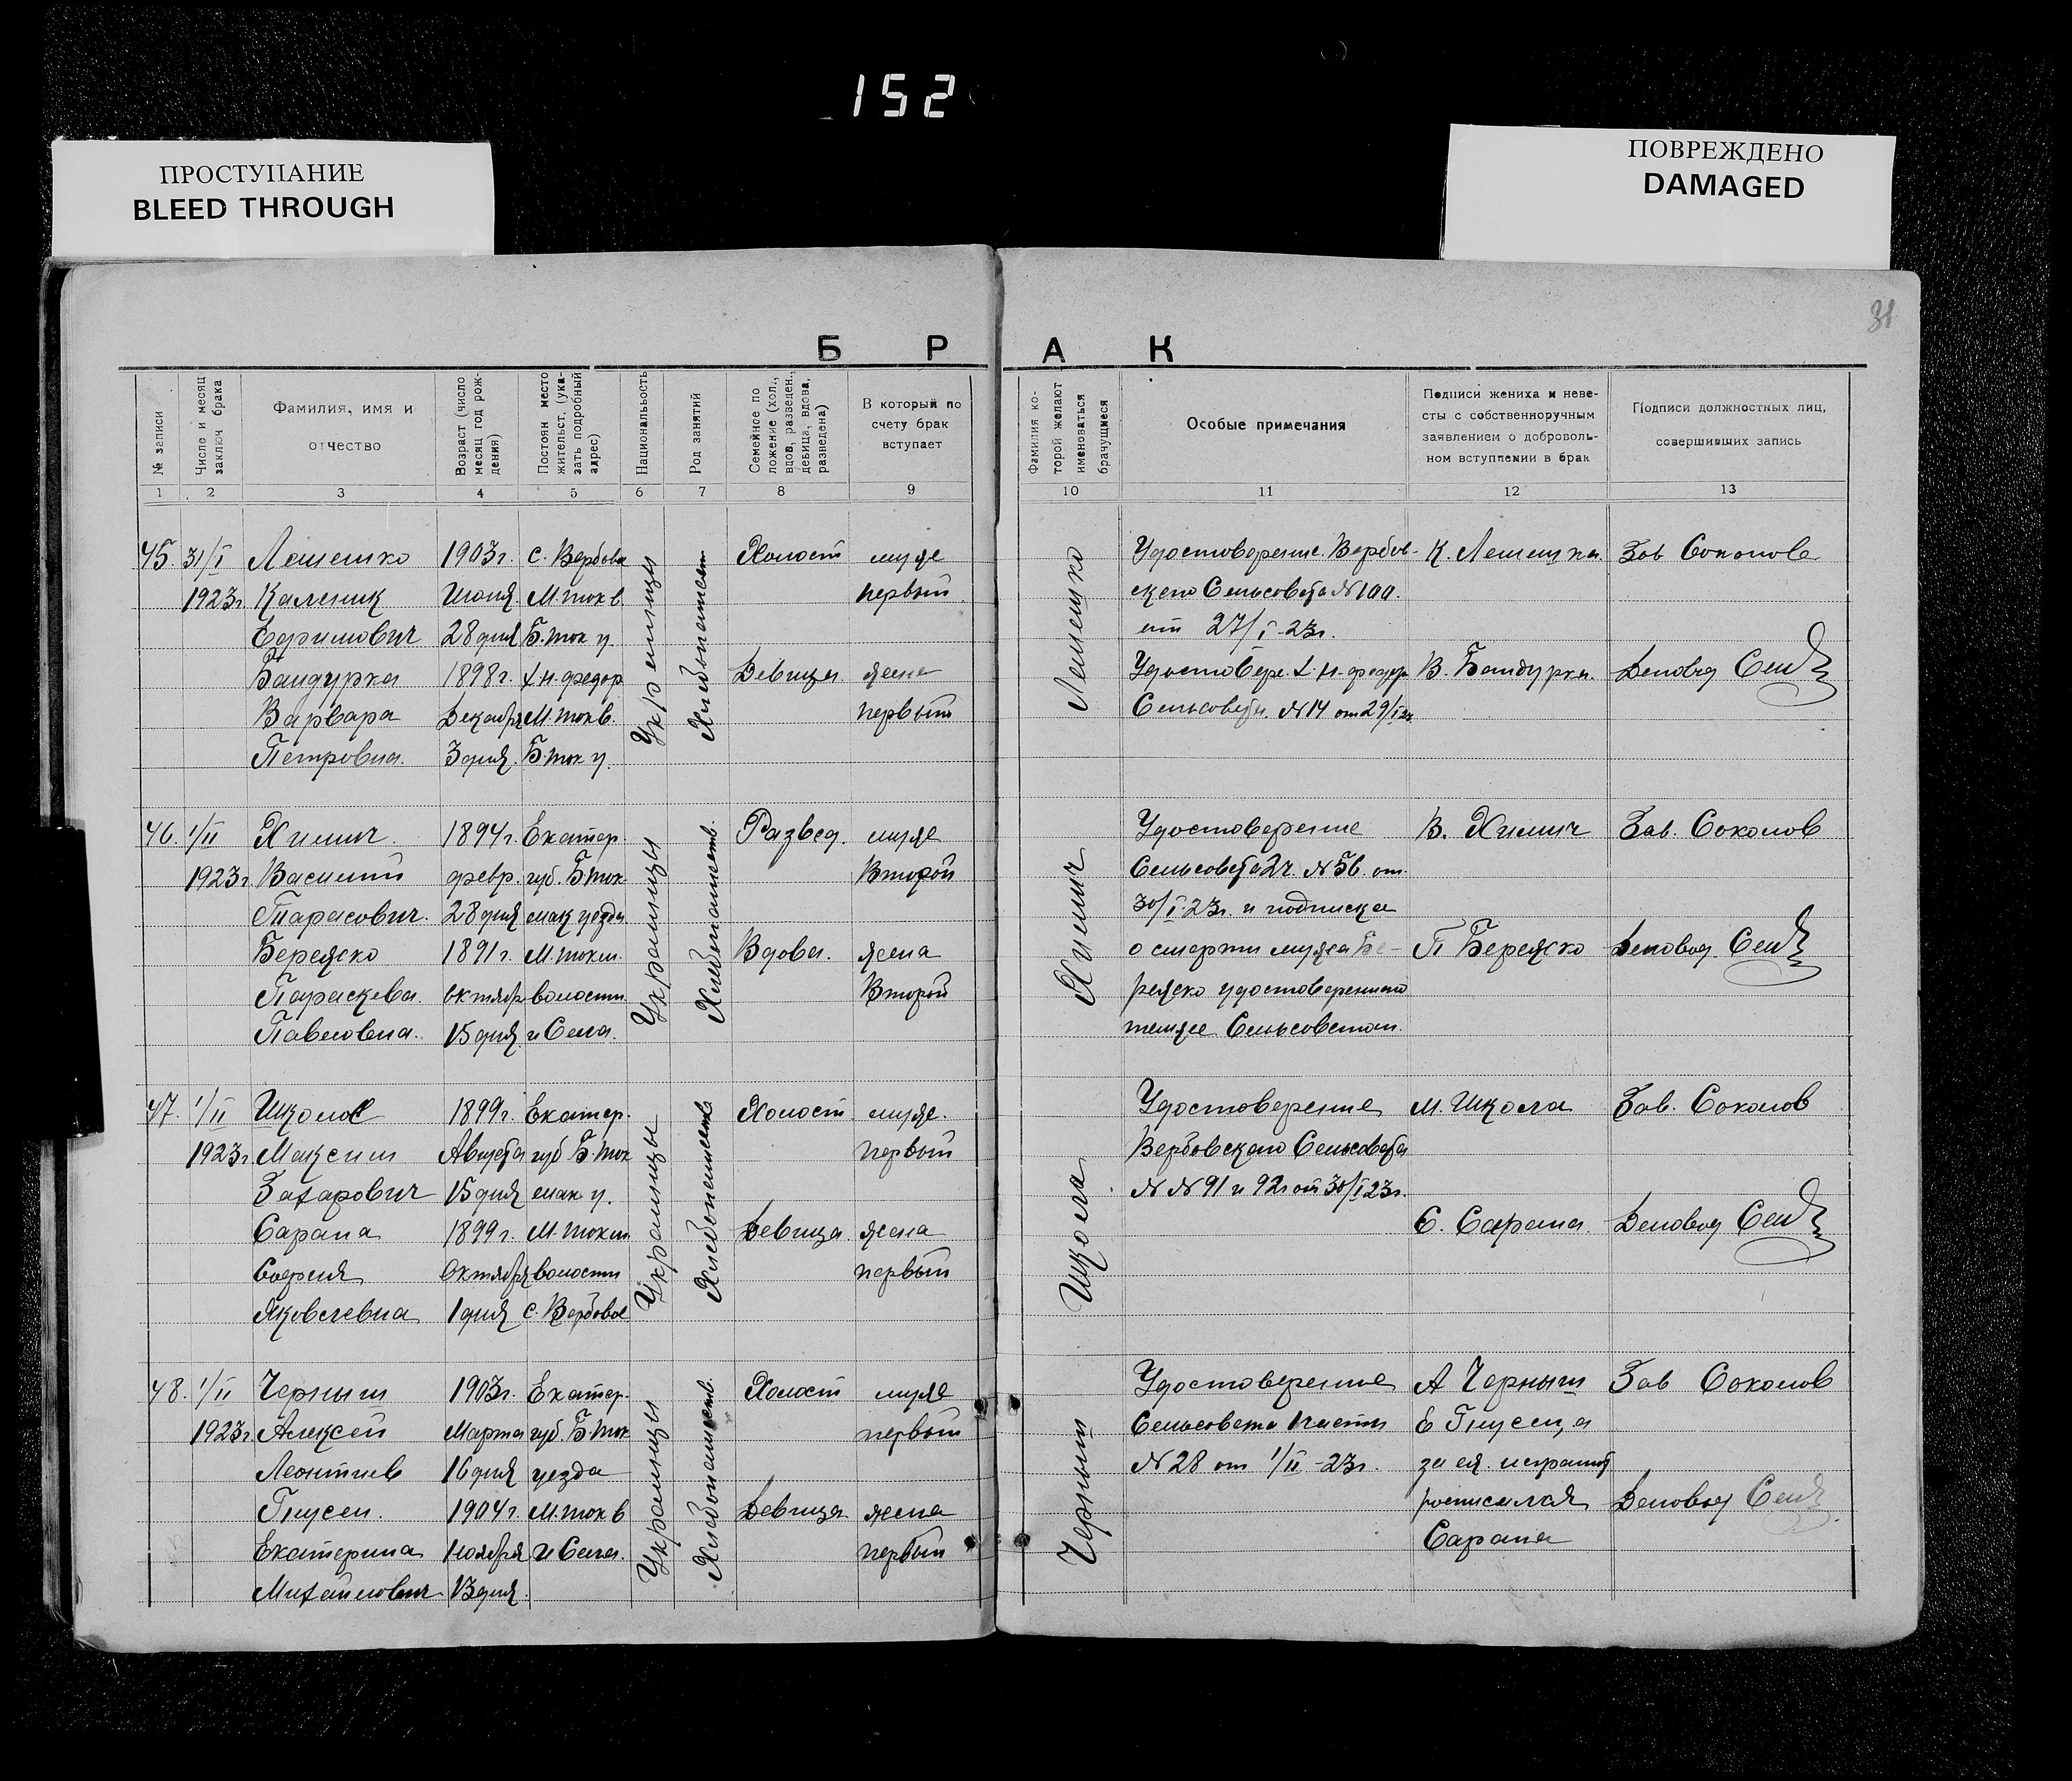 152
ПРОСТУПАНИЕ
BLEED THROUGH
ПОВРЕЖДЕНО
DAMAGED
31
Б Р А К
№ записи
Число и месяц заключ брака
Фамилия, имя и отчество
Возраст (число месяц год рождения)
Постоян место жительст. (указать подробный адрес)
Национальность
Род занятий
Семейное положение (хол., вдов, разведен., девица, вдова, разведена)
В который по счету брак вступает
Фамилия которой желают именоваться брачущиеся
Особые примечания
Подписи жениха и невесты с собственноручным заявлением о добровольном вступлении в брак
Подписи должностных лиц, совершивших запись
1 2 3 4 5 6 7 8 9 10 11 12 13
45. 31/I Лешешко 1903г. с. Вербова Холост муже Удостоверение Вербов- К. Лешешка Зав Соколов
1923г Каленик Июня М токв первый скаго Сельсовета №100.
Ефимович 28 дня Б. ток у. от 27/I-23г.
Бандурка 1898г. х н. федор Девица жена Удостовере. х. н. федор В. Бандурка. Деловод
Варвара Декабря М. токв. первый Сельсовета №14 от 29/I
Петровна. 3 дня. Б ток у.
Украинцы
Хлебопашест
Лешешко
46. 1/II Химич 1894г. Екатер. Развед. муже Удостоверение В. Химич Зав. Соколов
1923г Василий февр. губ. Б ток Второй Сельсовета 2ч. №56. от.
Тарасович. 28 дня мак уезда 30/I-23г. и подписка
Бережко 1891г. М. токм. Вдова. жена о смерти мужа Бе- П Бережко Деловод
Параскева октябр волости Второй режко удостоверенного
Павловна. 15 дня и Села. темже Сельсоветом.
Украинцы
Хлебопашеств.
Химич
47. 1/II Школа 1899г. Екатер. Холост муже. Удостоверение М. Школа Зав. Соколов
1923г Максим Августа губ Б ток первый Вербовскаго Сельсовета
Захарович 15 дня мак у. № № 91 и 92 от 30/I 23г.
Сарана 1899г. М. токм Девица жена С. Сарана. Деловод
София Октября волости первый
Яковлевна 1 дня с. Вербовое
Украинцы
Хлебопашеств
Школа
48. 1/II Черныш 1903г. Екатер. Холост муже Удостоверение А Черныш Зав Соколов
1923г Алексей Марта губ. Б ток первый Сельсовета 1 части Е Гнусен, а
Леонтиев 16 дня уезда №28 от 1/II-23г. за ея неграмот
Гнусен. 1904г. М. ток в Девица жена росписался Деловод
Екатерина Ноября и Села. первый Сарана
Михайлович 13 дня.
Украинцы
Хлебопашеств.
Черныш